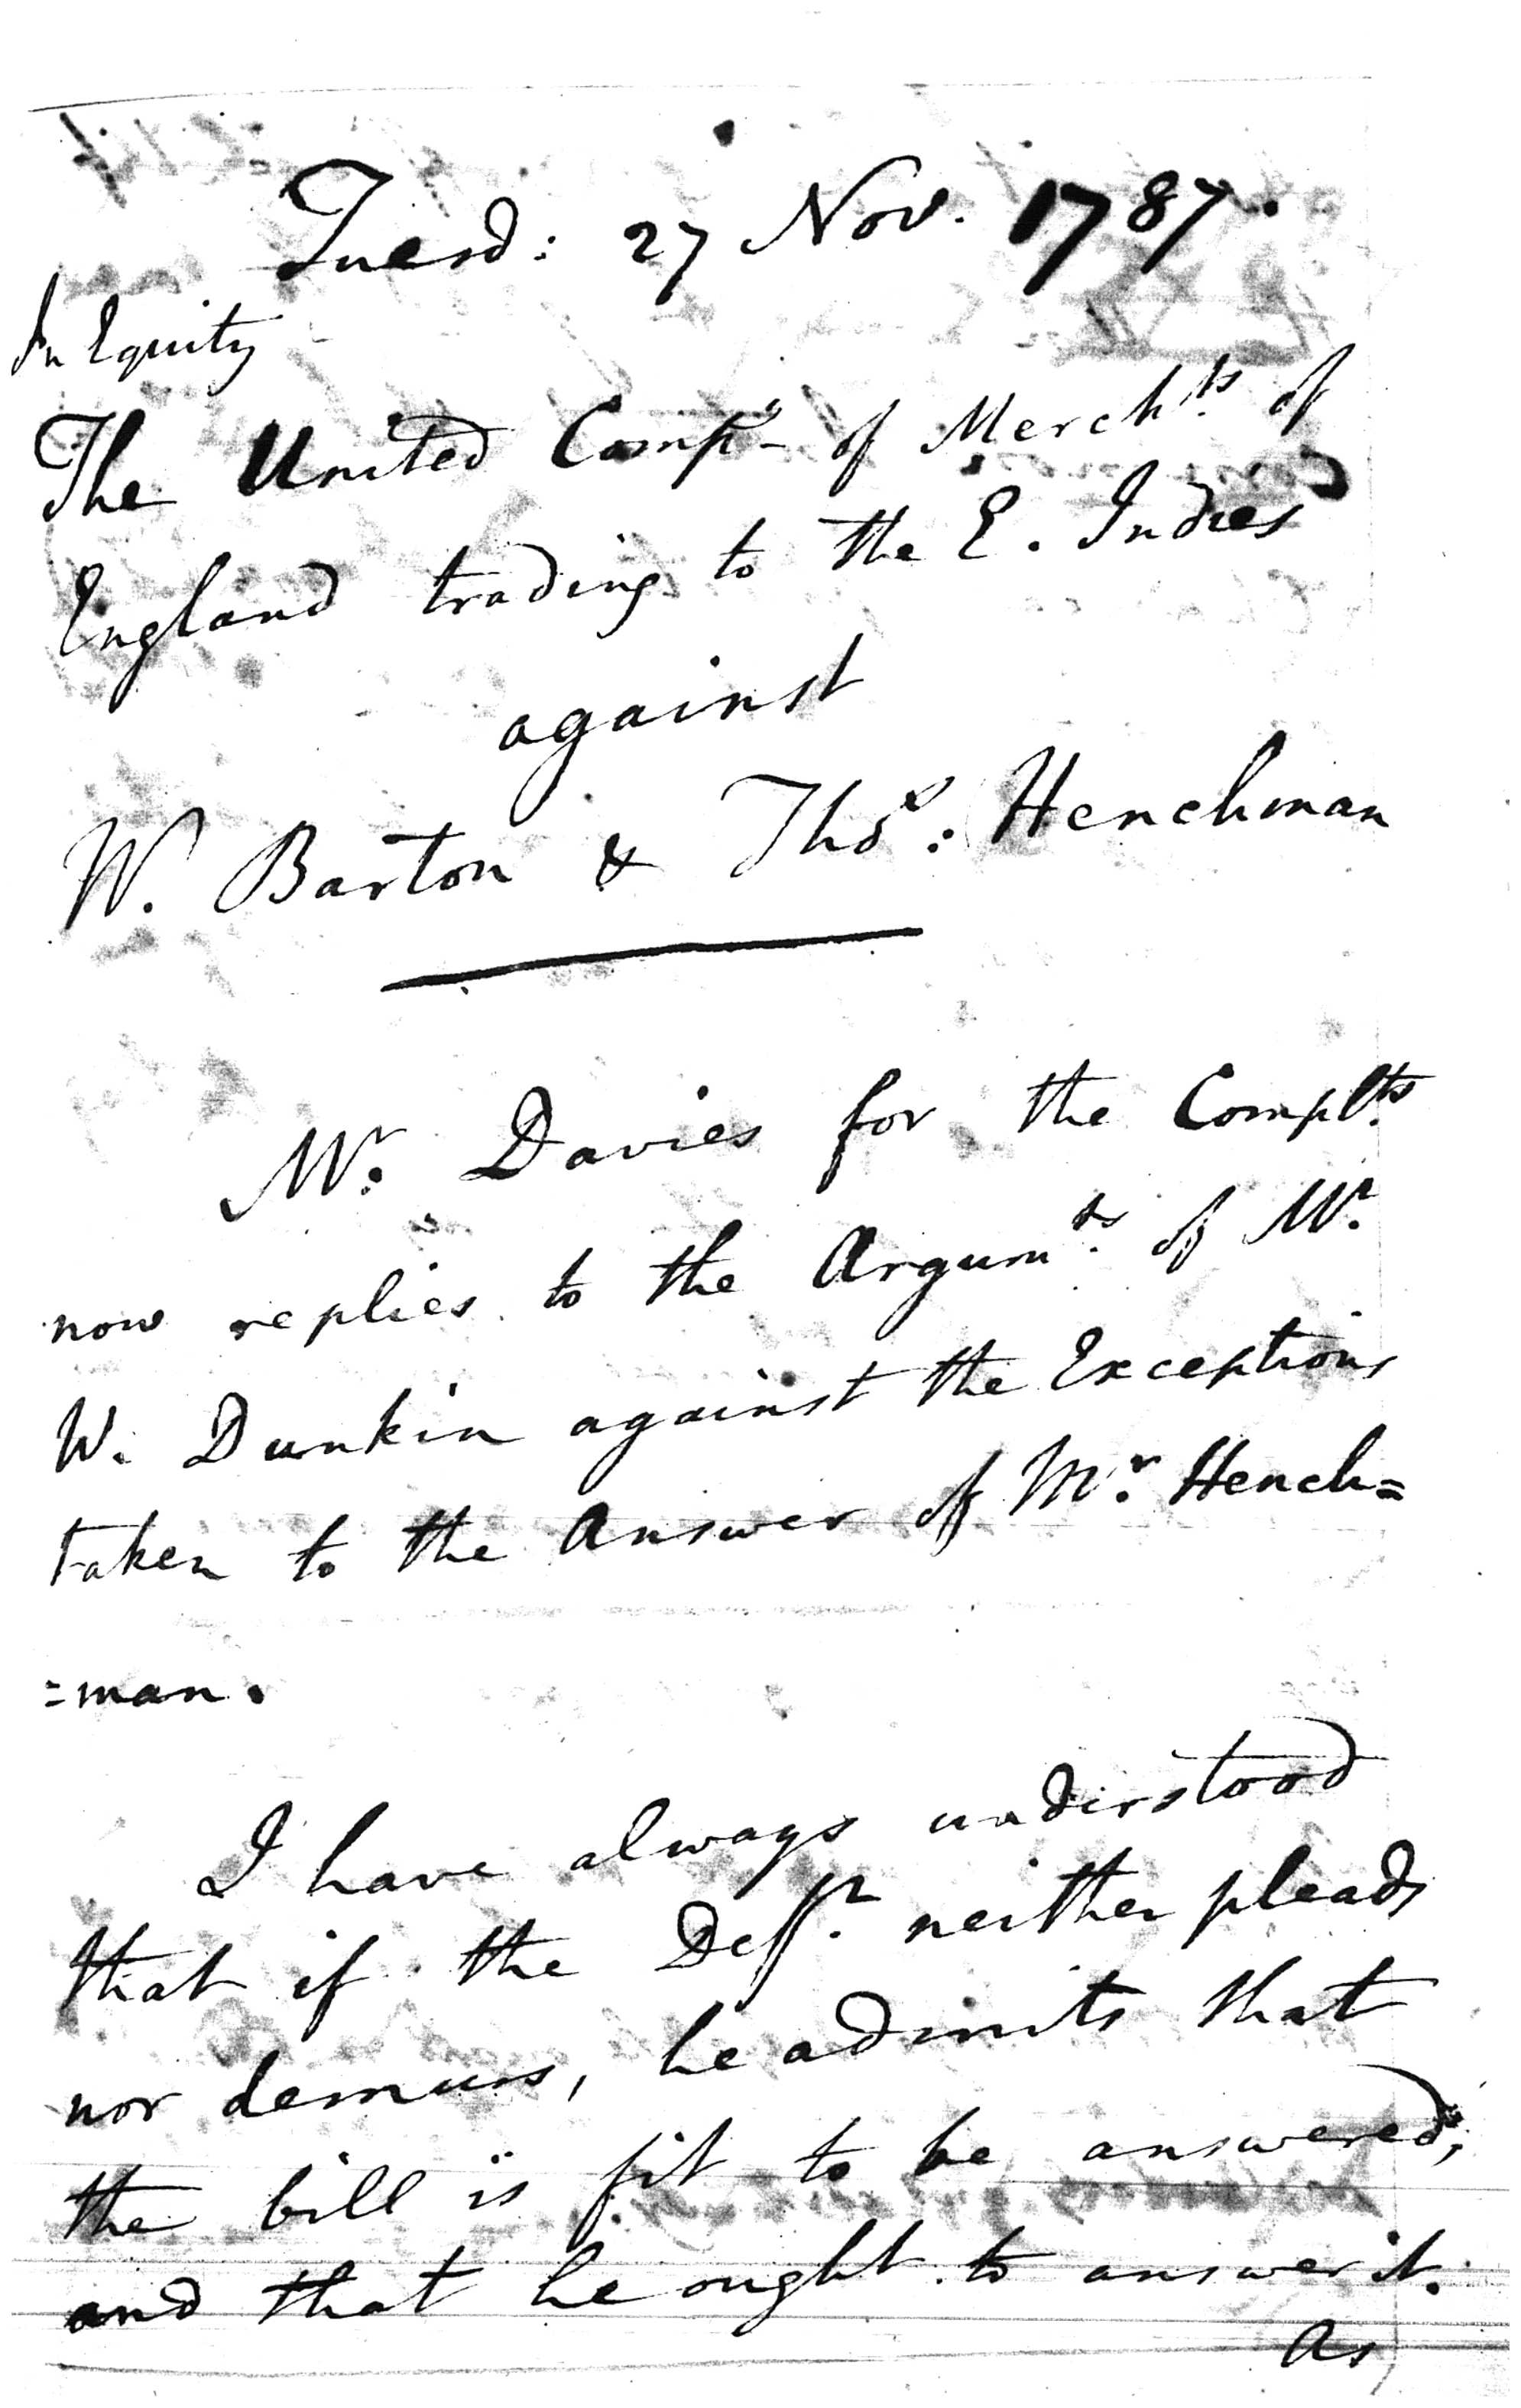 Tuesd: 27 Nov. 1787.
In Equity
The United Compy of Merchts of
England trading to the E. Indies
against
W. Barton & Thos: Henchman
Mr. Davies for the Complts
now replies to the Argumts. of Mr.
W. Dunkin against the Exceptions
taken to the Answer of Mr. Hench=
=man.
I have always understood
that if the Deft. neither pleads
nor demurs, he admits that
the bill is fit to be answered;
and that he ought to answer it.
As